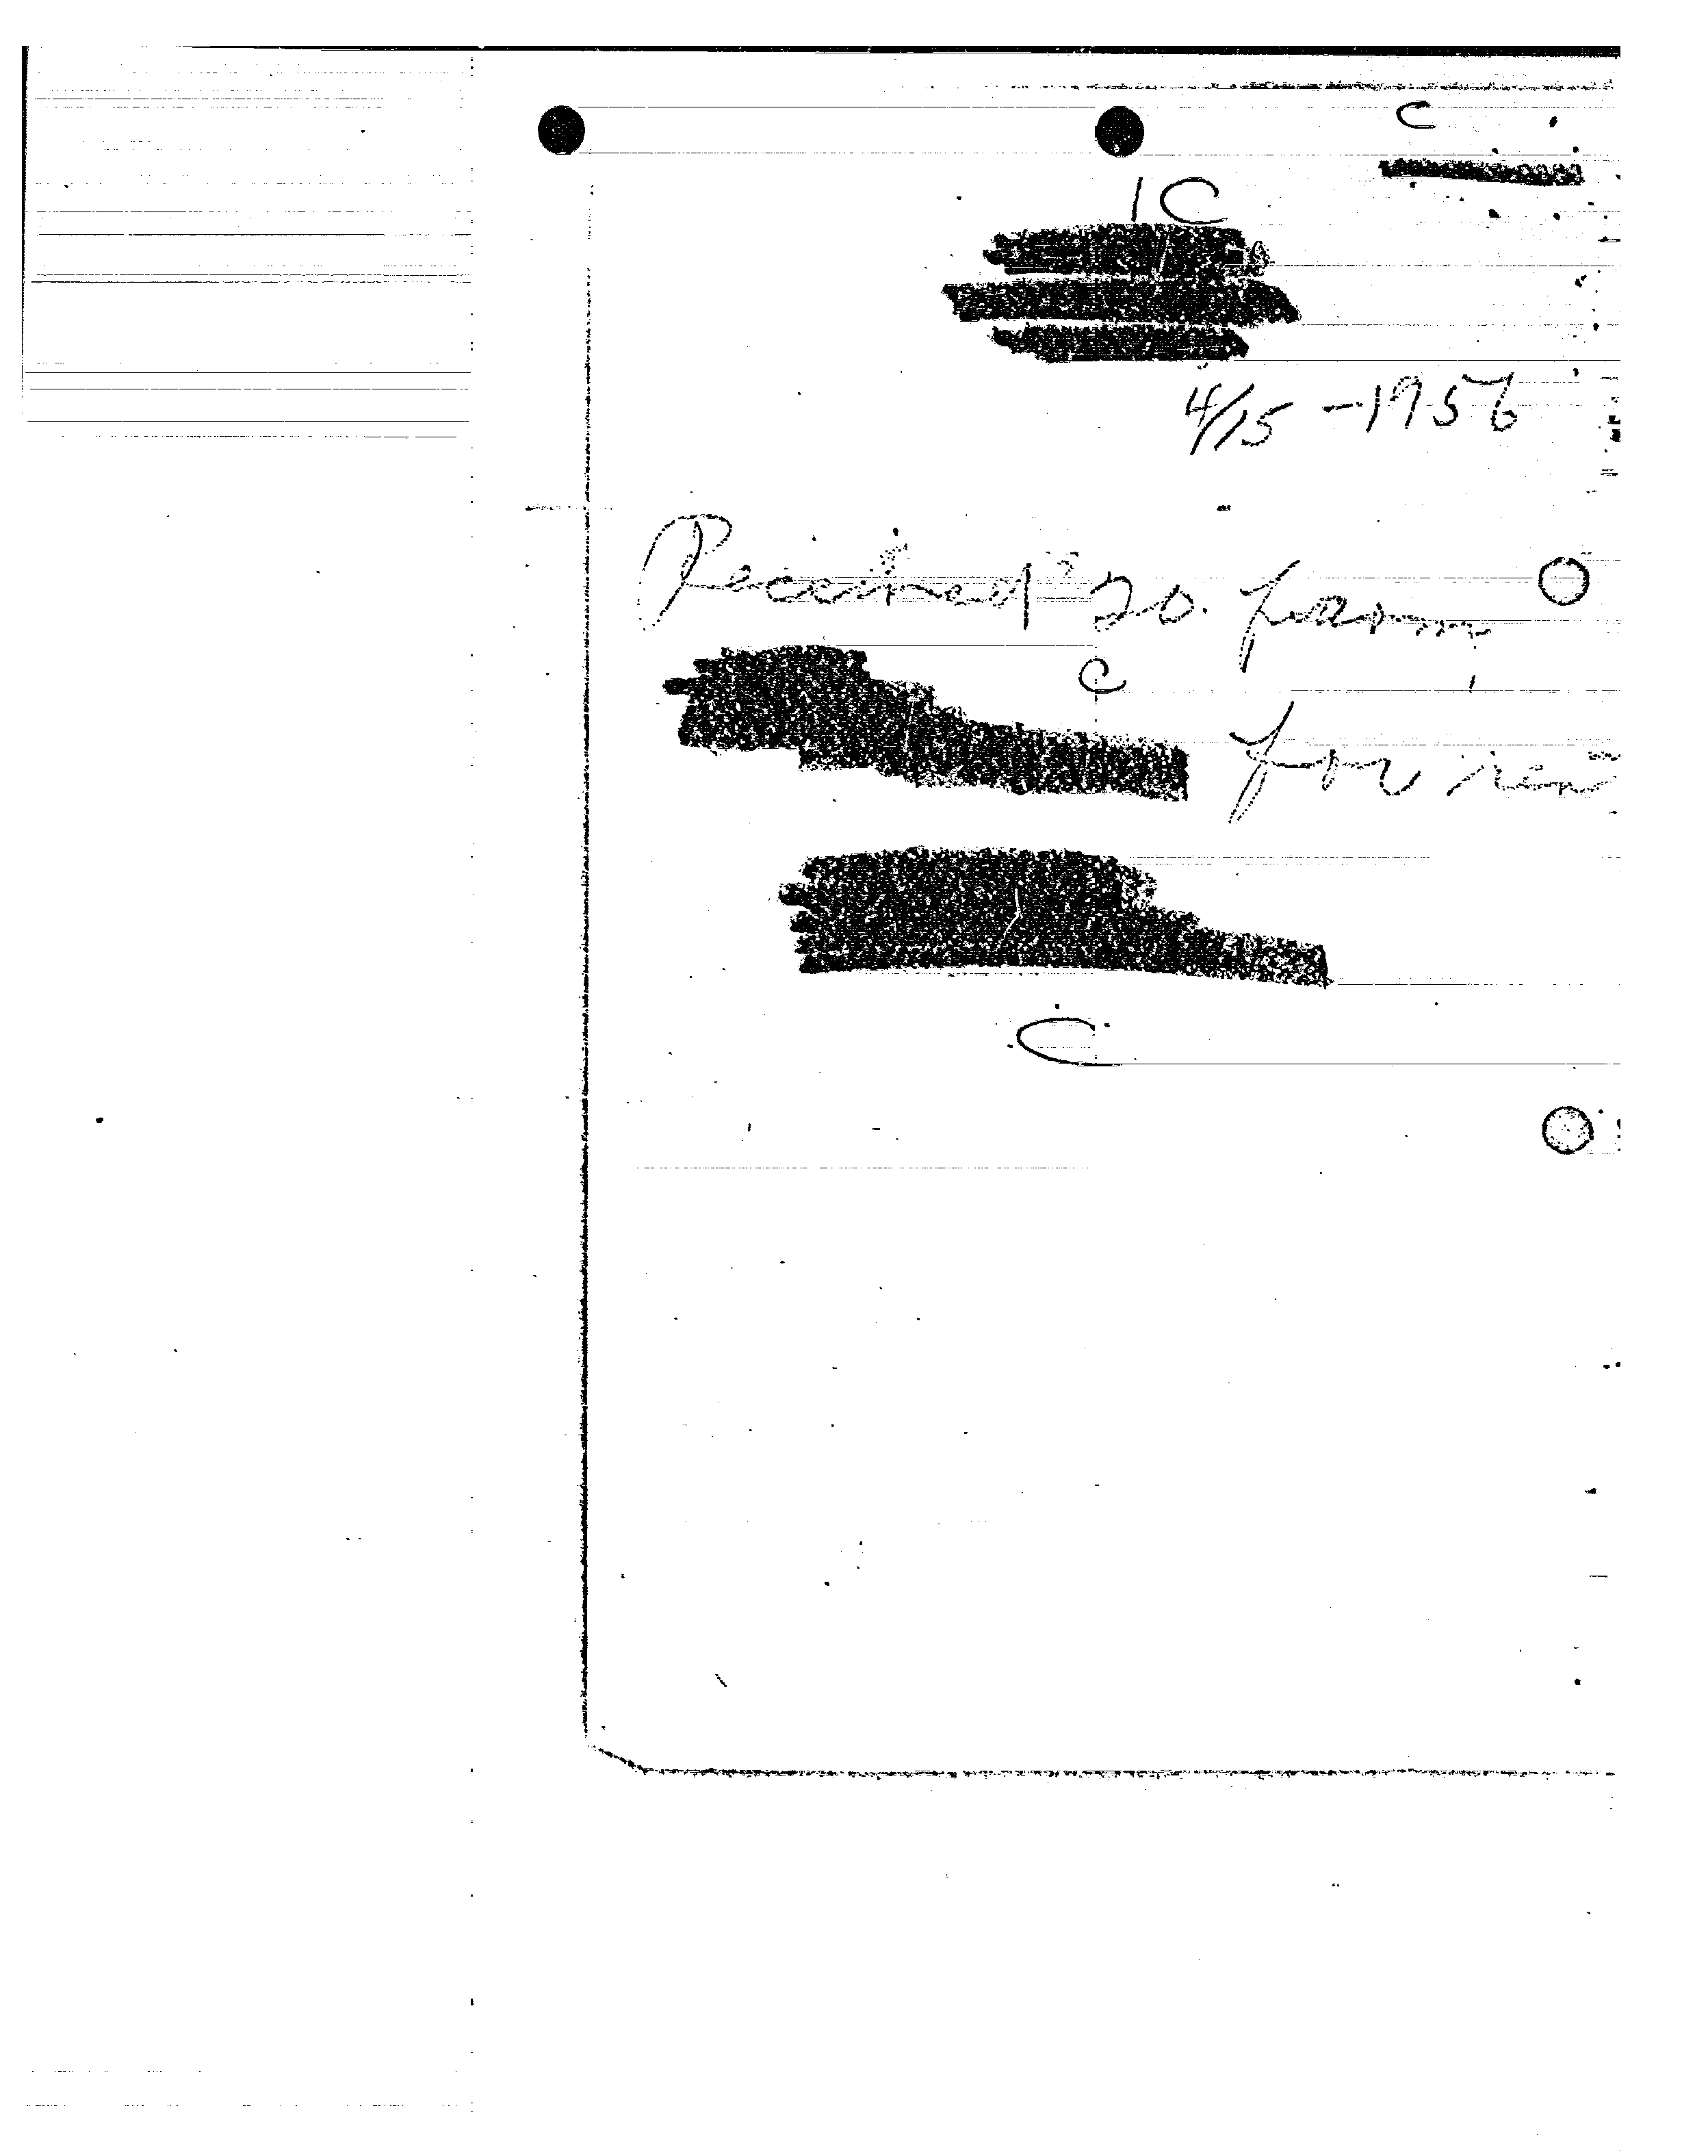 C
1C
4/15 - 1956
Received 20. from
C
for
C